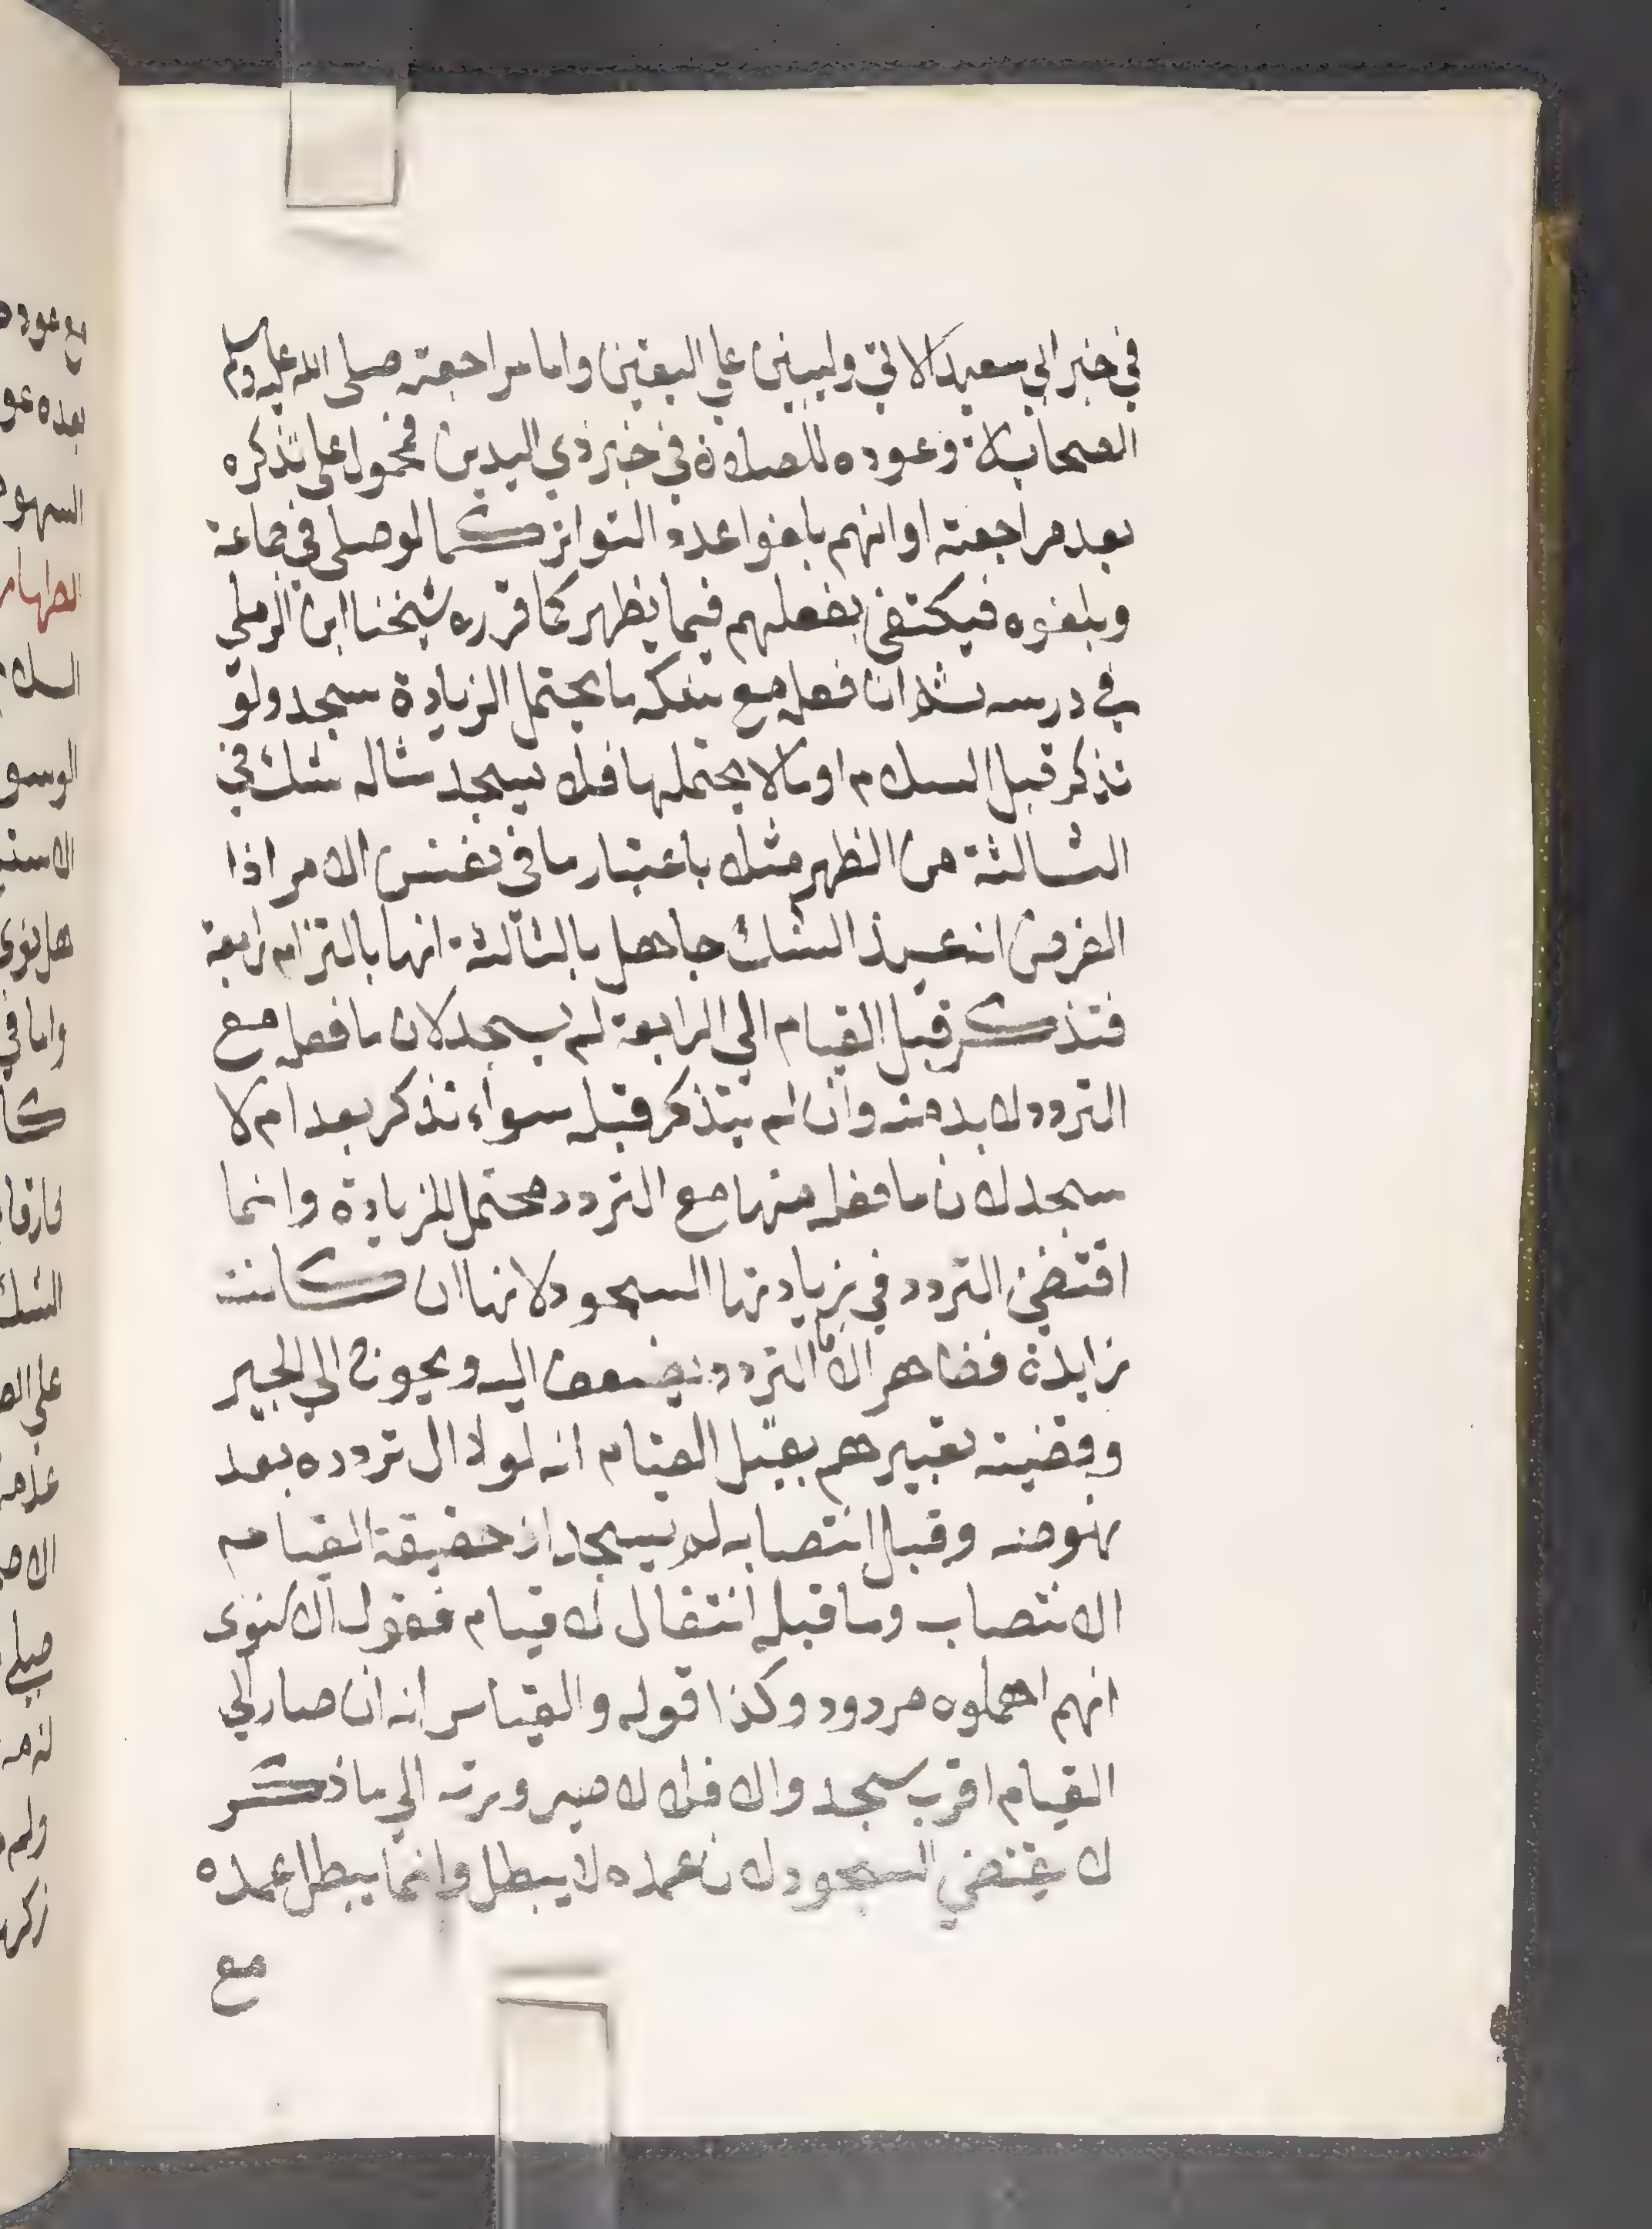 في خبر ابي سعيد الاتي وليبن علي اليقين واما مراجعته صلى الله عليه وسلم
الصحابة وعوده للصلاة في خبر ذي اليدين فمحمول على تذكره
بعد مراجعته او انهم بلغوا عدد التواتر كما لو صلى في جماعة
وبلغوه فيكتفي بفعلهم فيما يظهر كما قرره شيخنا ابن الرملي
في درسه ان فعله مع شكه ما يحتمل الزيادة سجد ولو
تذكر قبل السلام او ما لا يحتملها فلا يسجد مثاله شك في
الثالثة من الظهر مثلا باعتبار ما في نفس الامر اذا
الفرض انه عند الشك جاهل بالثالثة انها بالتزام رابعة
فتذكر قبل القيام الي الرابعة لم يسجد لان ما فعله مع
التردد لا بد منه وان لم يتذكر قبله سواء تذكر بعد ام لا
سجد لان ما فعله منها مع التردد محتمل للزيادة وانما
اقتضي التردد في زيادتها السجود لانها ان كانت
زايدة فظاهر والا التردد يضعف النيه ويحوج الي الجبر
وقضية تعبيرهم بقبل القيام انه لو زال تردده بعد
نهوضه وقبل انتصابه لم يسجد اذ حقيقة القيام
الانتصاب وما قبله انتقال لا قيام فقول الاسنوى
انهم اهملوه مردود وكذا قوله والقياس انه ان صار الي
القيام اقرب سجد والا فلا لان صيرورته الي ما ذكر
لا يقتضي السجود لان عمده لا يبطل وانما يبطل عمده
مع